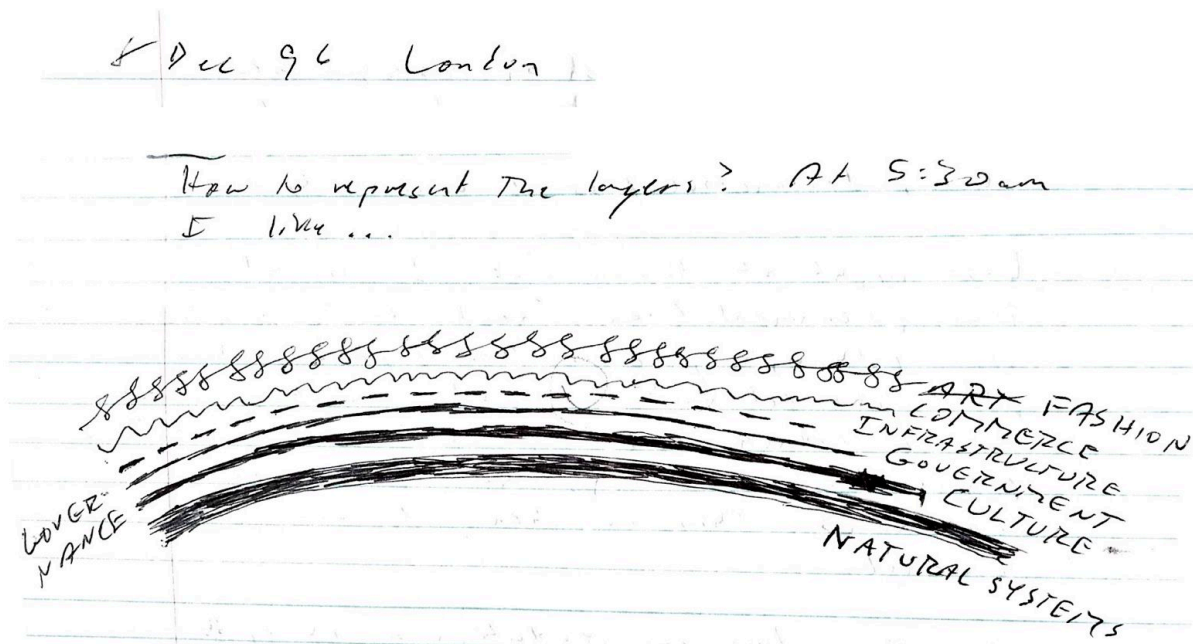 Dec 96 London
How to represent the layers? At 5:30am
I like...
ART FASHION
COMMERCE
INFRASTRUCTURE
GOVERNMENT
CULTURE
NATURAL SYSTEMS
GOVER-
NANCE